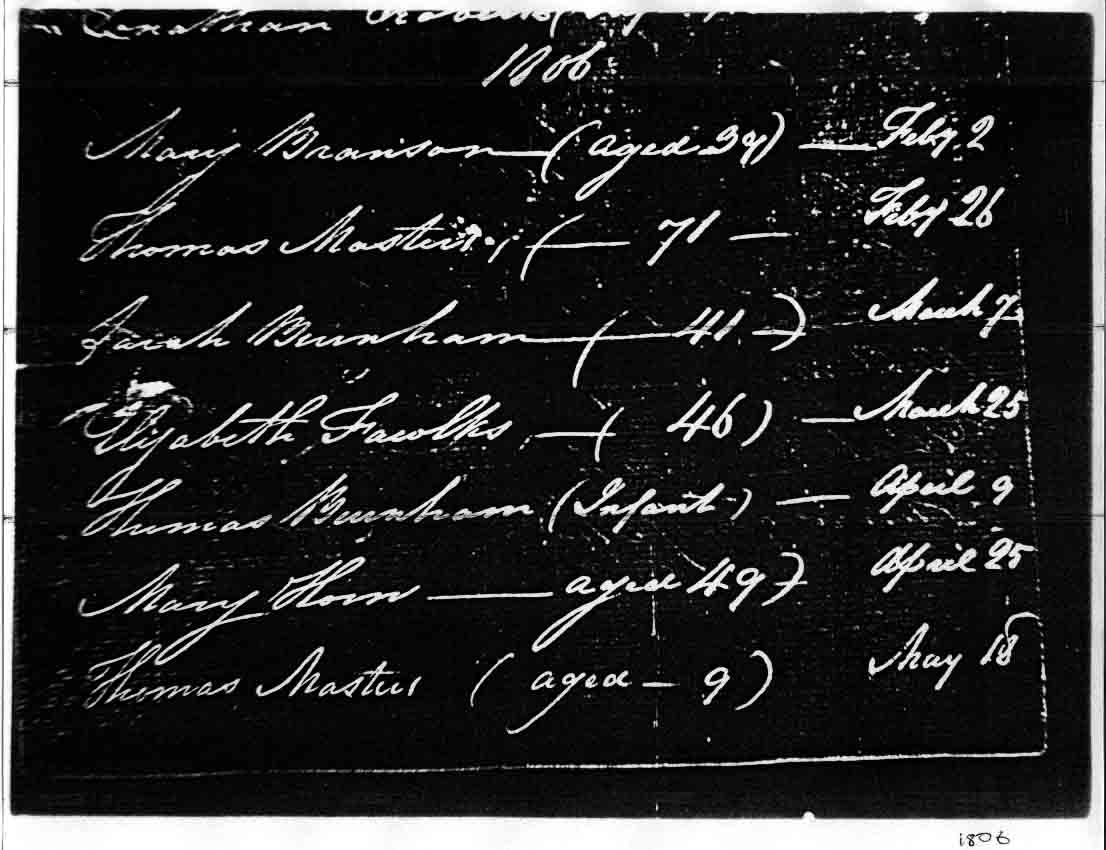 Jonathan
1806
Mary Branson (aged 39) — Feby. 2
Thomas Masters (— 71 — Feby 26
Sarah Burnham (— 41 —) March 7
Elizabeth Fawlks — ( 46 ) — March 25
Thomas Burnham (Infant) — April 9
Mary Horn — aged 49) April 25
Thomas Masters (aged — 9) May 18
1806